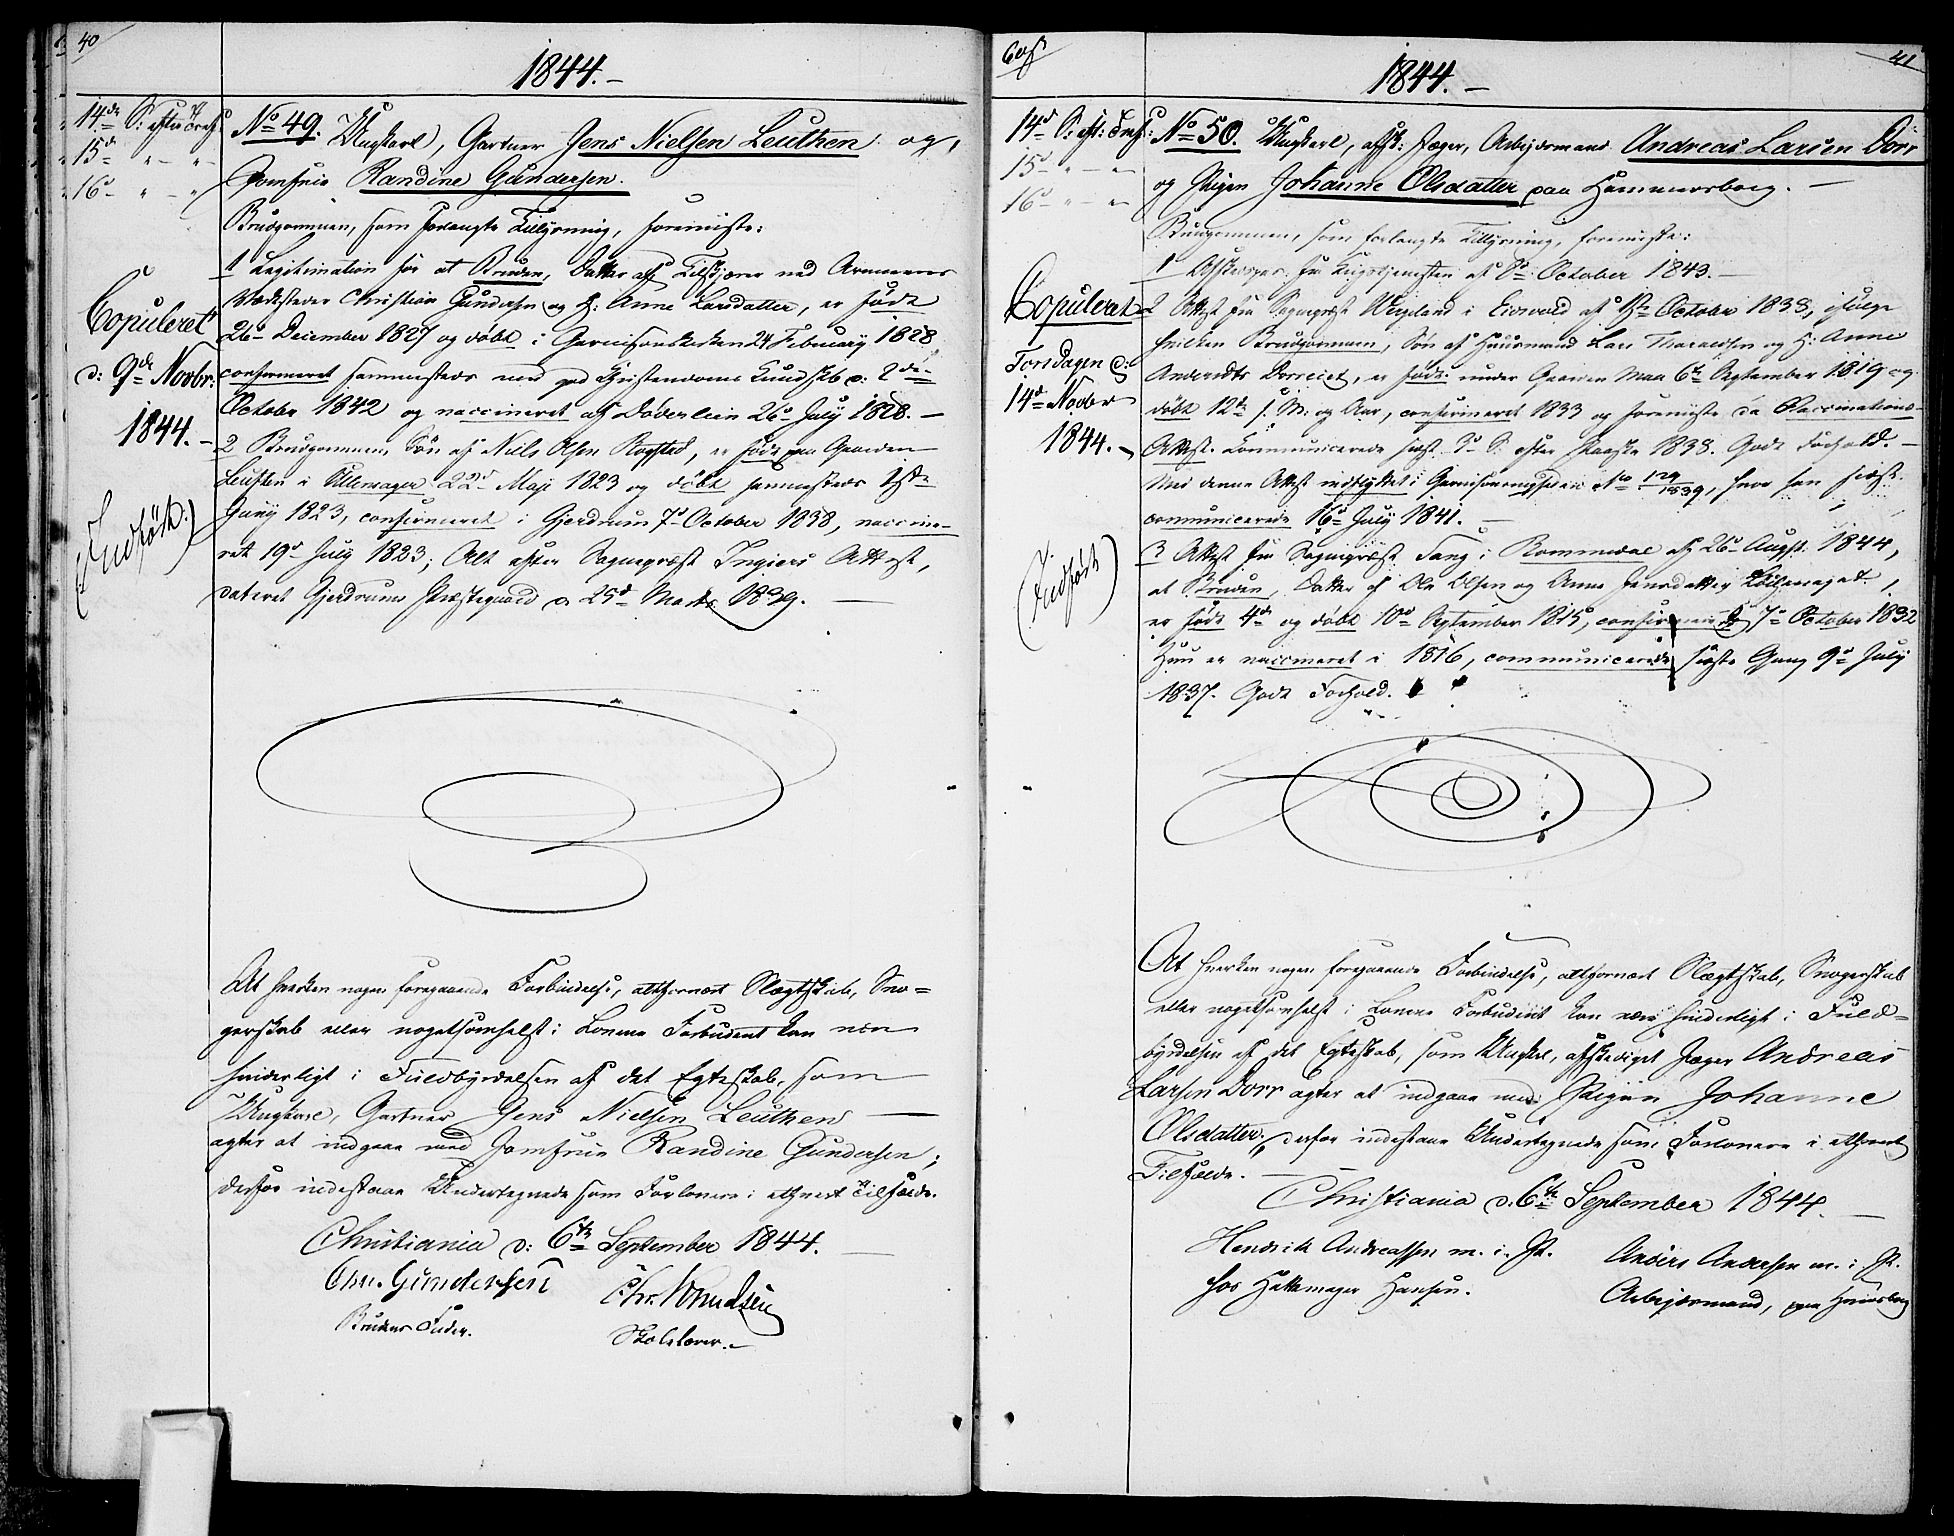 40
1844.-
14de S: efter Tref:
15de " - " -
16de " - "
No 49. Ungkarl, Gartner Jens Nielsen Leuthen og,
Jomfrue Randine Gundersen.
Brudgommen, som forlangte Tillysning, foreviiste:
1 Legitimation for at Bruden, Datter af Tilskjærer ved Armeens
Christian Gundersen og H: Anne Larsdatter, er født
26de December 1827 og døbt i Garnisonskirken 24 February 1828
confirmeret sammesteds med god Christendoms Kundskab d: 2den
October 1842 og vaccineret af Døderlein 26de July 1828. -
2 Brudgommen, Søn af Niels Olsen Rogstad, er født paa Gaarden
Leuthen i Ullensager 22de Maji 1823 og døbt sammesteds 1ste
Juny 1823, confirmeret i Gjerdrum 7de October 1838, vaccine-
ret 19de July 1823; Alt efter Sognepræst Ingiers Attest,
dateret Gjerdrums Præstegaard d. 25de Marts 1839. -
Copuleret
d: 9de Novbr:
1844. -
(Indført.)
At hverken nogen foregaaende Forbindelse, altfornært Slægtskab, Svo=
gerskab eller nogetsomhelst i Lovene Forbudent kan være
hinderligt i Fuldbyrdelsen af det Egteskab, som
Ungkarl, Gartner Jens Nielsen Leuthen
agter at indgaae med Jomfrue Randine Gundersen;
derfor indestaae Undertegnede som Forlovere i ethvert Tilfælde.
Christiania d: 6te September 1844.
Chr. Gundersen
Brudens Fader.
Chr. Knudsen
Skolelærer. -
60
41
1844. -
14de S: eft: Tref:
15de " - " -
16de " - " -
No 50. Ungkarl, afsk: Jæger, Arbejdsmand Andreas Larsen Dorr
og Pigen Johanne Olsdatter paa Hammersborg. -
Brudgommen, som forlangte Tillysning, foreviiste:
1 Afskedspas fra Krigstjenesten af October 1843. -
2 Attest fra Sognepræst Wergeland i Eidsvold af October 1838, ifølge
hvilken Brudgommen, Søn af Huusmand Lars Tharaldsen og H: Anne
Andersdtr Dorreiet, er født under Gaarden Maa 6te September 1819 og
døbt 12te s: M: og Aar, confirmeret 1833 og foreviiste da Vaccinations-
Attest. Communicerede sidst S: efter Paaske 1838. Godt Forhold. -
Med denne Attest indflyttet i Garnisonsmenigheden No 129/1839, hvor han sidst
communicerede 16de July 1841. -
3 Attest fra Sognepræst Fang i Rommedal af 26de Augst: 1844,
at Bruden, Datter af Ole Olsen og Anne Jensdatter,
er født 4de og døbt 10de September 1815, confirmeret 7de October 1832
Hun er vaccineret i 1816, communicerede sidste Gang 9de July
1837. Godt Forhold.
Copuleret
Torsdagen d:
14de Novbr
1844. -
(Indført)
At hverken nogen foregaaende Forbindelse, altfornært Slægtskab, Svogerskab
eller nogetsomhelst i Lovene Forbudent kan være hinderligt i Fuld=
byrdelsen af det Egteskab, som Ungkarl, afskediget Jæger Andreas
Larsen Dorr agter at indgaae med Pigen Johanne
Olsdatter; derfor indestaae Undertegnede som Forlovere i ethvert
Tilfælde. -
Christiania d. 6te September 1844. -
Hendrik Andreassen m. i. P.
hos Hattemager Hansen.
Anders Andersen m. i P.
Arbejdsmand, paa